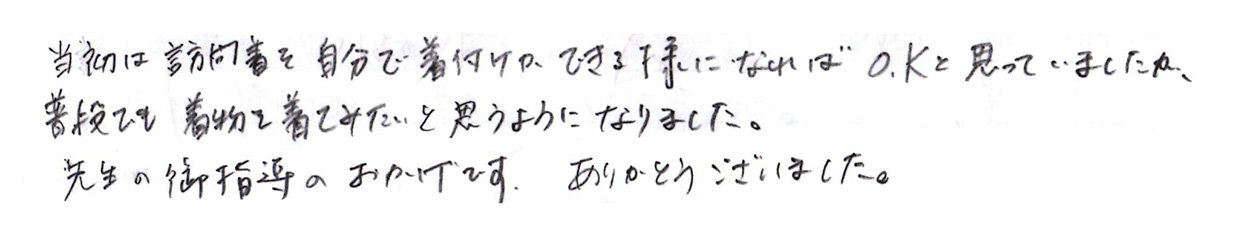 当初は訪問着を自分で着付けができる様になれば O.Kと思っていましたが、
普段でも着物を着てみたいと思うようになりました。
先生の御指導のおかげです. ありがとうございました。